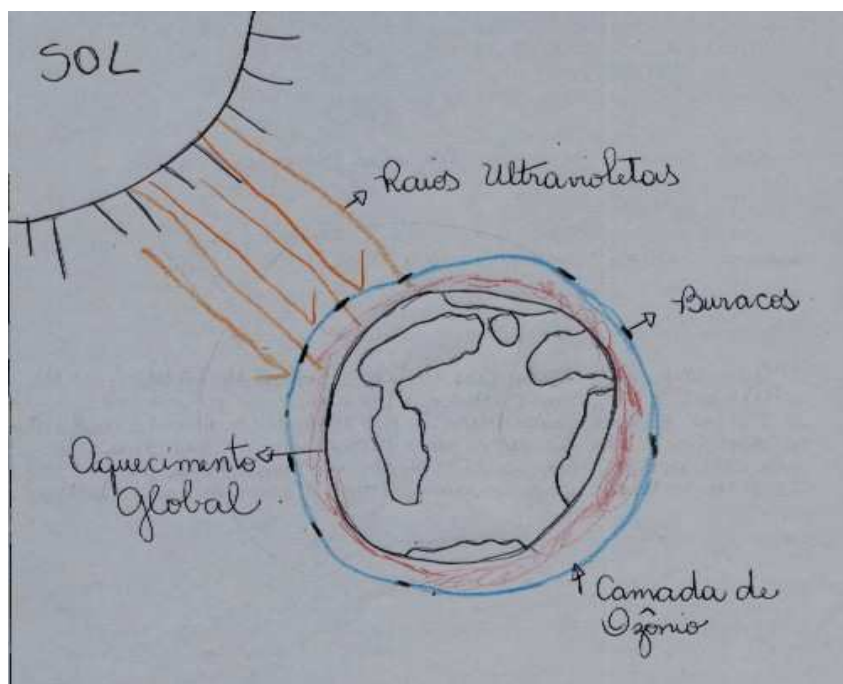 SOL
Raios Ultravioletas
Buracos
Aquecimento
Global
Camada de
Ozônio